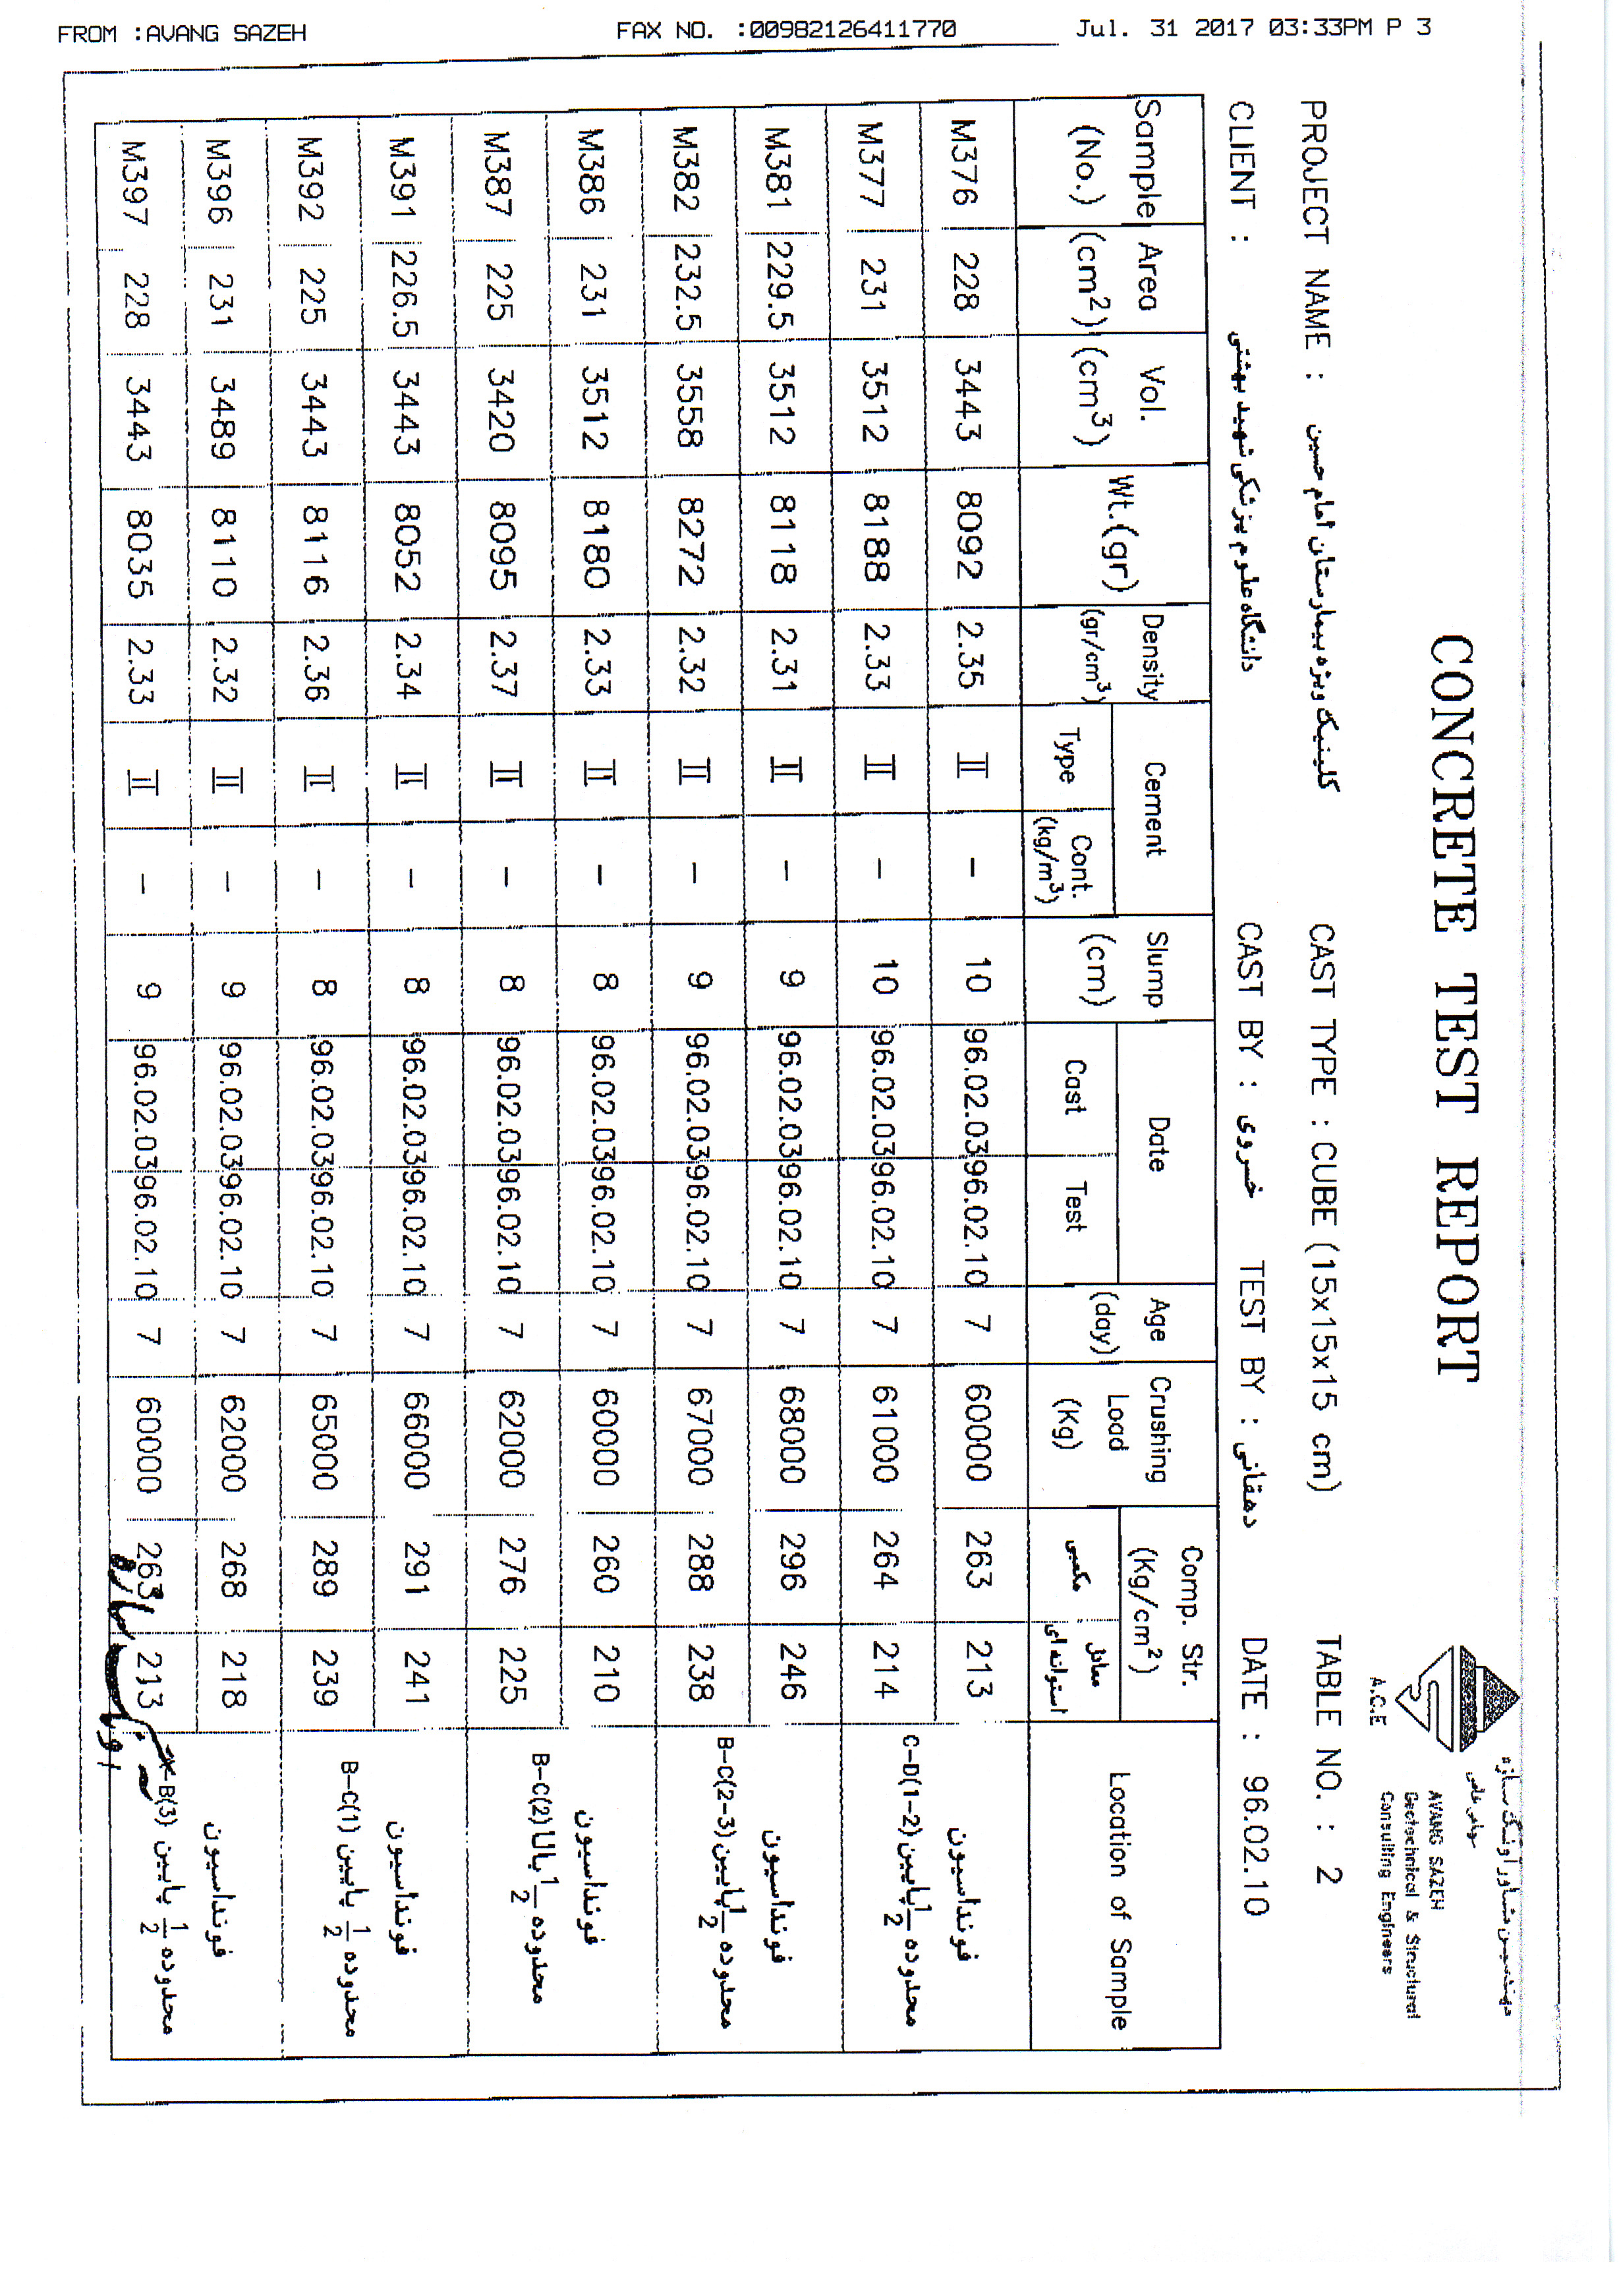 FROM :AVANG SAZEH FAX NO. :00982126411770 Jul. 31 2017 03:33PM P 3
CONCRETE TEST REPORT
مهندسین مشاور آونگ سازه
سهامی خاص
AVANG SAZEH
Geotechnical & Structural
Consulting Engineers
A.C.E
PROJECT NAME : کلینیک ویژه بیمارستان امام حسین CAST TYPE : CUBE (15x15x15 cm) TABLE NO. : 2
CLIENT : دانشگاه علوم پزشکی شهید بهشتی CAST BY : خسروی TEST BY : دهقانی DATE : 96.02.10
Sample (No.) Area (cm²) Vol. (cm³) Wt.(gr) Density (gr/cm³) Cement Type Cont. (kg/m³) Slump (cm) Date Cast Test Age (day) Crushing Load (Kg) Comp. Str. (Kg/cm²) مکعبی معادل استوانه ای Location of Sample
M376 228 3443 8092 2.35 II – 10 96.02.03 96.02.10 7 60000 263 213 فونداسیون
M377 231 3512 8188 2.33 II – 10 96.02.03 96.02.10 7 61000 264 214 محدوده 1/2 پایین C–D(1–2)
M381 229.5 3512 8118 2.31 II – 9 96.02.03 96.02.10 7 68000 296 246 فونداسیون
M382 232.5 3558 8272 2.32 II – 9 96.02.03 96.02.10 7 67000 288 238 محدوده 1/2 پایین B–C(2–3)
M386 231 3512 8180 2.33 II – 8 96.02.03 96.02.10 7 60000 260 210 فونداسیون
M387 225 3420 8095 2.37 II – 8 96.02.03 96.02.10 7 62000 276 225 محدوده 1/2 بالا B–C(2)
M391 226.5 3443 8052 2.34 II – 8 96.02.03 96.02.10 7 66000 291 241 فونداسیون
M392 225 3443 8116 2.36 II – 8 96.02.03 96.02.10 7 65000 289 239 محدوده 1/2 پایین B–C(1)
M396 231 3489 8110 2.32 II – 9 96.02.03 96.02.10 7 62000 268 218 فونداسیون
M397 228 3443 8035 2.33 II – 9 96.02.03 96.02.10 7 60000 263 213 محدوده 1/2 پایین B(3)